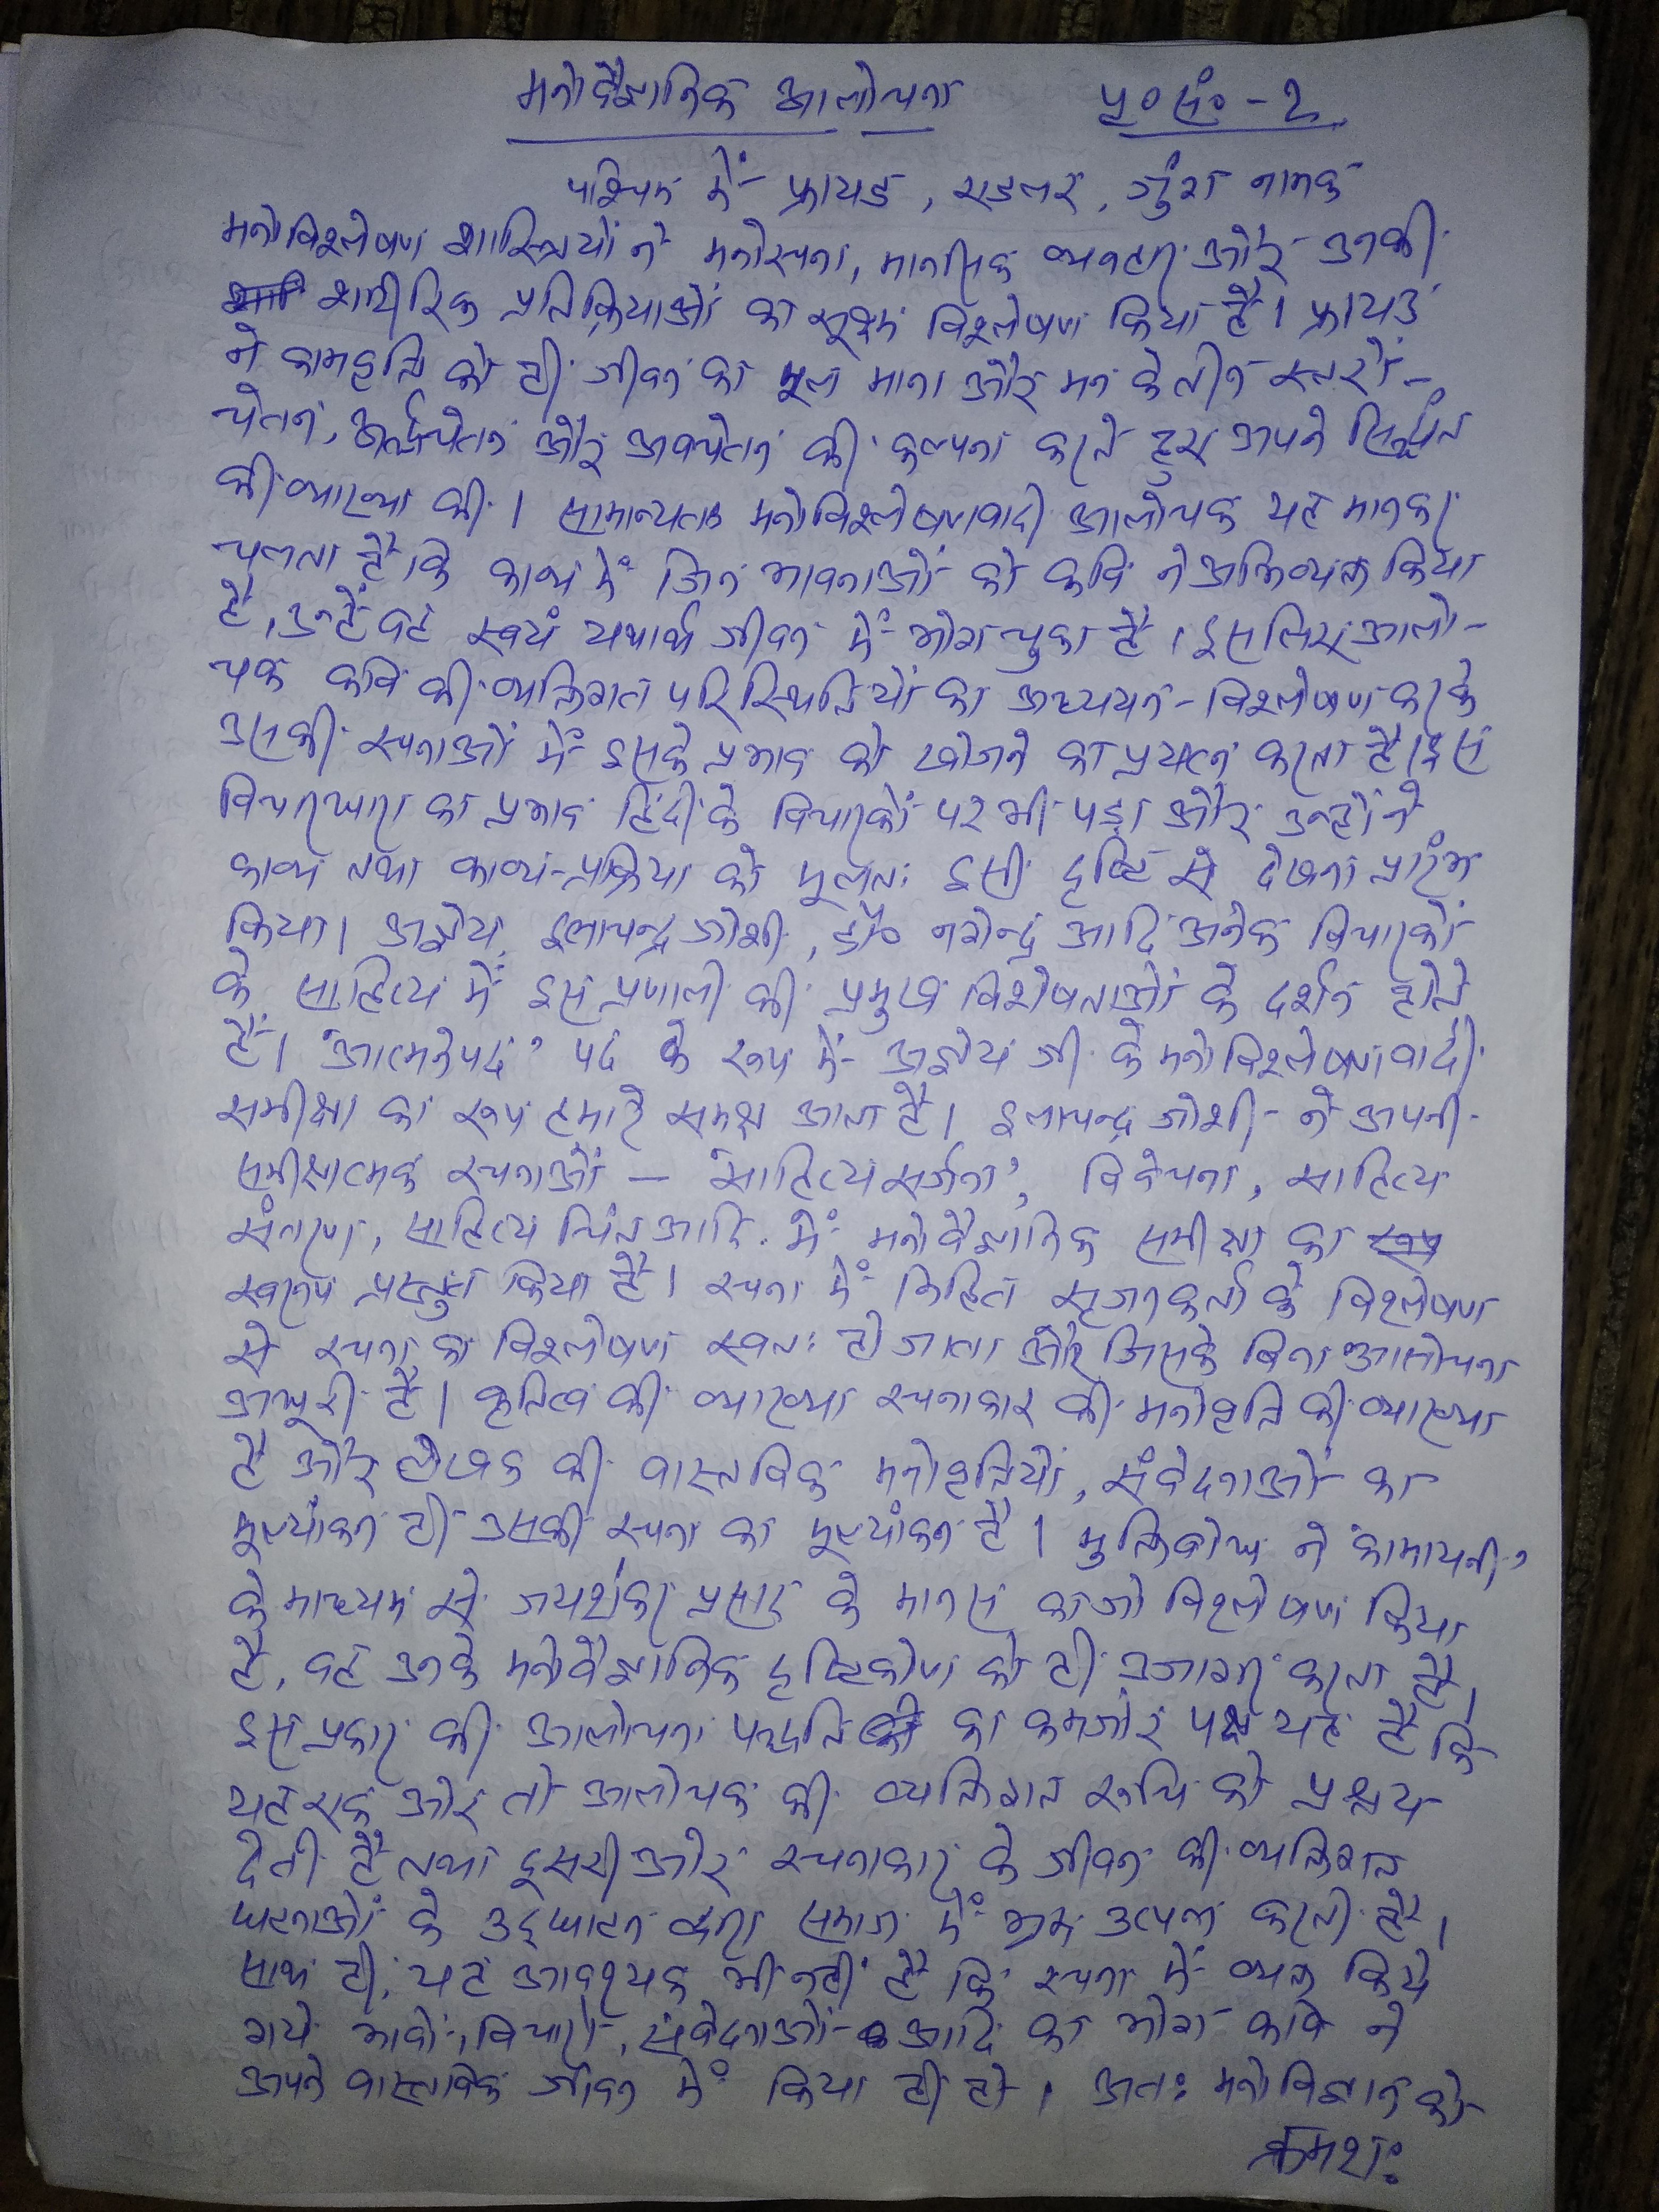 मनोवैज्ञानिक आलोचना पृ० सं० - 2
पश्चिम में फ्रायड, एडलर, युंग नामक
मनोविश्लेषण शास्त्रियों ने मनोरचना, मानसिक व्यवहार और उनकी
शारीरिक प्रतिक्रियाओं का सूक्ष्म विश्लेषण किया है। फ्रायड
ने कामवृत्ति को ही जीवन का मूल माना और मन के तीन स्तरों -
चेतन, अर्द्धचेतन और अवचेतन की कल्पना करते हुए अपने सिद्धांत
की व्याख्या की। सामान्यतः मनोविश्लेषणवादी आलोचक यह मानकर
चलता है कि काव्य में जिन भावनाओं को कवि ने अभिव्यक्त किया
है, उन्हें वह स्वयं यथार्थ जीवन में भोग चुका है। इसलिए आलो-
चक कवि की व्यक्तिगत परिस्थितियों का अध्ययन - विश्लेषण करके
उसकी रचनाओं में इसके प्रभाव को खोजने का प्रयत्न करता है। इस
विचारधारा का प्रभाव हिंदी के विचारकों पर भी पड़ा और उन्होंने
काव्य तथा काव्य-प्रक्रिया को मूलतः इसी दृष्टि से देखना प्रारंभ
किया। अज्ञेय, इलाचन्द्र जोशी, डॉ० नगेन्द्र आदि अनेक विचारकों
के साहित्य में इस प्रणाली की प्रमुख विशेषताओं के दर्शन होते
हैं। 'आत्मनेपद' पद के रूप में अज्ञेय जी के मनोविश्लेषणवादी
समीक्षा का रूप हमारे समक्ष आता है। इलाचन्द्र जोशी ने अपनी
समीक्षात्मक रचनाओं — 'साहित्य सर्जना', विवेचना, साहित्य
संतरण, साहित्य चिंतन आदि में मनोवैज्ञानिक समीक्षा का
स्वरूप प्रस्तुत किया है। रचना में निहित सृजनकर्ता के विश्लेषण
से रचना का विश्लेषण स्वतः हो जाता और जिसके बिना आलोचना
अधूरी है। कृतित्व की व्याख्या रचनाकार की मनोवृत्ति की व्याख्या
है और लेखक की वास्तविक मनोवृत्तियों, संवेदनाओं का
मूल्यांकन ही उसकी रचना का मूल्यांकन है। मुक्तिबोध ने 'कामायनी'
के माध्यम से जयशंकर प्रसाद के मानस का जो विश्लेषण किया
है, वह उनके मनोवैज्ञानिक दृष्टिकोण को ही उजागर करता है।
इस प्रकार की आलोचना पद्धति का कमजोर पक्ष यह है कि
यह एक ओर तो आलोचक की व्यक्तिगत रूचि को प्रश्रय
देती है तथा दूसरी ओर रचनाकार के जीवन की व्यक्तिगत
घटनाओं के उद्घाटन द्वारा समाज में भ्रम उत्पन्न करती है।
साथ ही, यह आवश्यक भी नहीं है कि रचना में व्यक्त किये
गये भावों, विचारों, संवेदनाओं आदि का भोग कवि ने
अपने वास्तविक जीवन में किया ही हो। अतः मनोविज्ञान को
क्रमशः